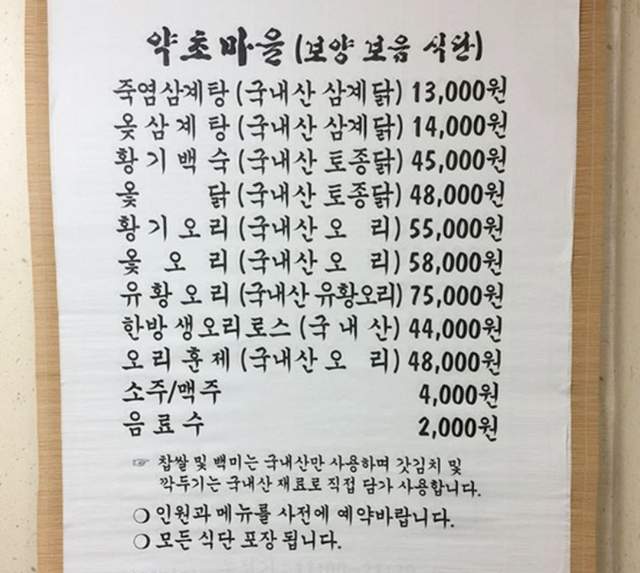 약초마을 (보양 보음 식단)
죽염삼계탕 (국내산 삼계닭) 13,000원
옻삼계탕 (국내산 삼계닭) 14,000원
황기백숙 (국내산 토종닭) 45,000원
옻 닭 (국내산 토종닭) 48,000원
황기오리 (국내산 오 리) 55,000원
옻 오 리 (국내산 오 리) 58,000원
유황오리 (국내산 유황오리) 75,000원
한방생오리로스 (국내산) 44,000원
오리훈제 (국내산 오 리) 48,000원
소주/맥주 4,000원
음료수 2,000원
☞ 찹쌀 및 백미는 국내산만 사용하며 갓김치 및
깍두기는 국내산 재료로 직접 담가 사용합니다.
❍ 인원과 메뉴를 사전에 예약바랍니다.
❍ 모든 식단 포장 됩니다.